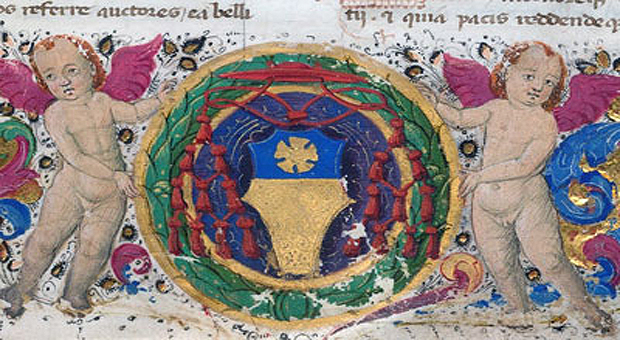 os referre auctores, ea belli
tij. & quia pacis reddende q